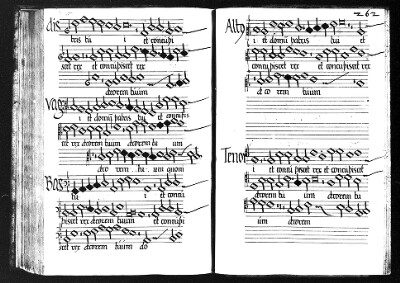 dis
tris tui i et concupi
scet rex et concupiscet rex
decorem tuum
Vag
i et domum patris tui et concupis
cet rex decorem tuum decorem tu um
deco rem tu um quoni
Bas
tui i et concu
piscet rex decorem tuum et concupi
scet rex decorem tuum de
262
Alt
i et domum patris tui et
concupiscet rex et concupiscet rex
de co rem tuum
Tenor
i et concu piscet rex et concupiscet
decorem tu um decorem tu
um decorem